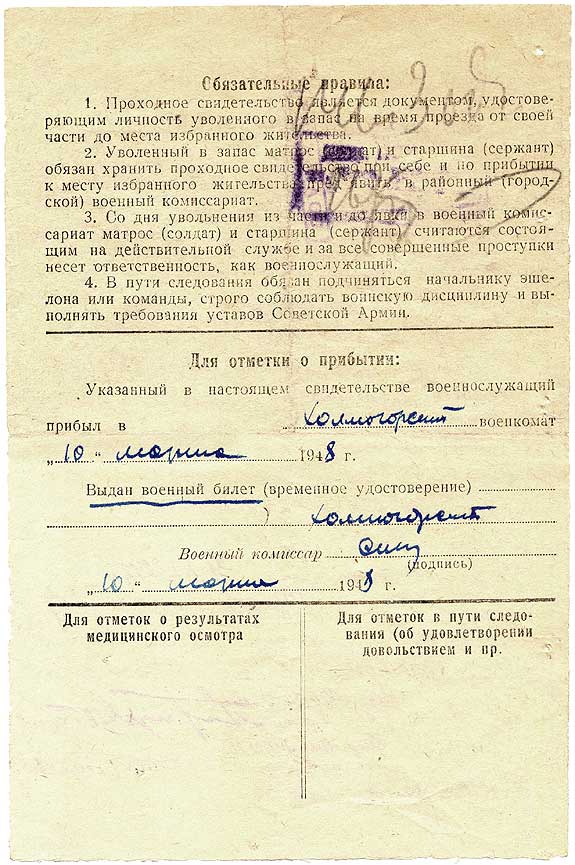 Обязательные правила:
1. Проходное свидетельство является документом, удостове-
ряющим личность уволенного в запас на время проезда от своей
части до места избранного жительства.
2. Уволенный в запас матрос (солдат) и старшина (сержант)
обязан хранить проходное свидетельство при себе и по прибытии
к месту избранного жительства пред'явить в районный (город-
ской) военный комиссариат.
3. Со дня увольнения из части и до явки в военный комис-
сариат матрос (солдат) и старшина (сержант) считаются состоя-
щим на действительной службе и за все совершенные проступки
несет ответственность, как военнослужащий.
4. В пути следования обязан подчиняться начальнику эше-
лона или команды, строго соблюдать воинскую дисциплину и вы-
полнять требования уставов Советской Армии.
Для отметки о прибытии:
Указанный в настоящем свидетельстве военнослужащий
прибыл в Холмогорский военкомат
„10“ марта 1948 г.
Выдан военный билет (временное удостоверение)
) Холмогорский
Военный комиссар
(подпись)
„10“ марта 1948 г.
Для отметок о результатах
медицинского осмотра
Для отметок в пути следо-
вания (об удовлетворении
довольствием и пр.